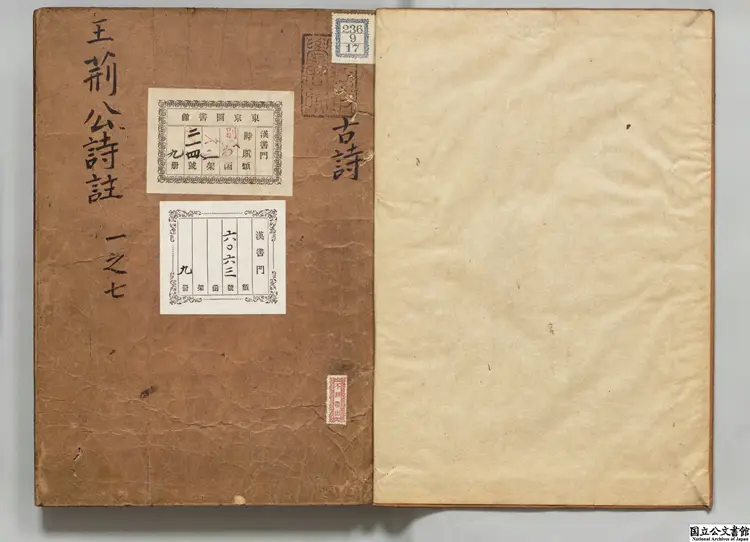 王荊公詩註 一之七
古詩
236
9
17
東京圖書館
漢書門
類
函
架
二一四號
九册
漢書門
類
六〇六三號
函
架
九冊
国立公文書館
National Archives of Japan